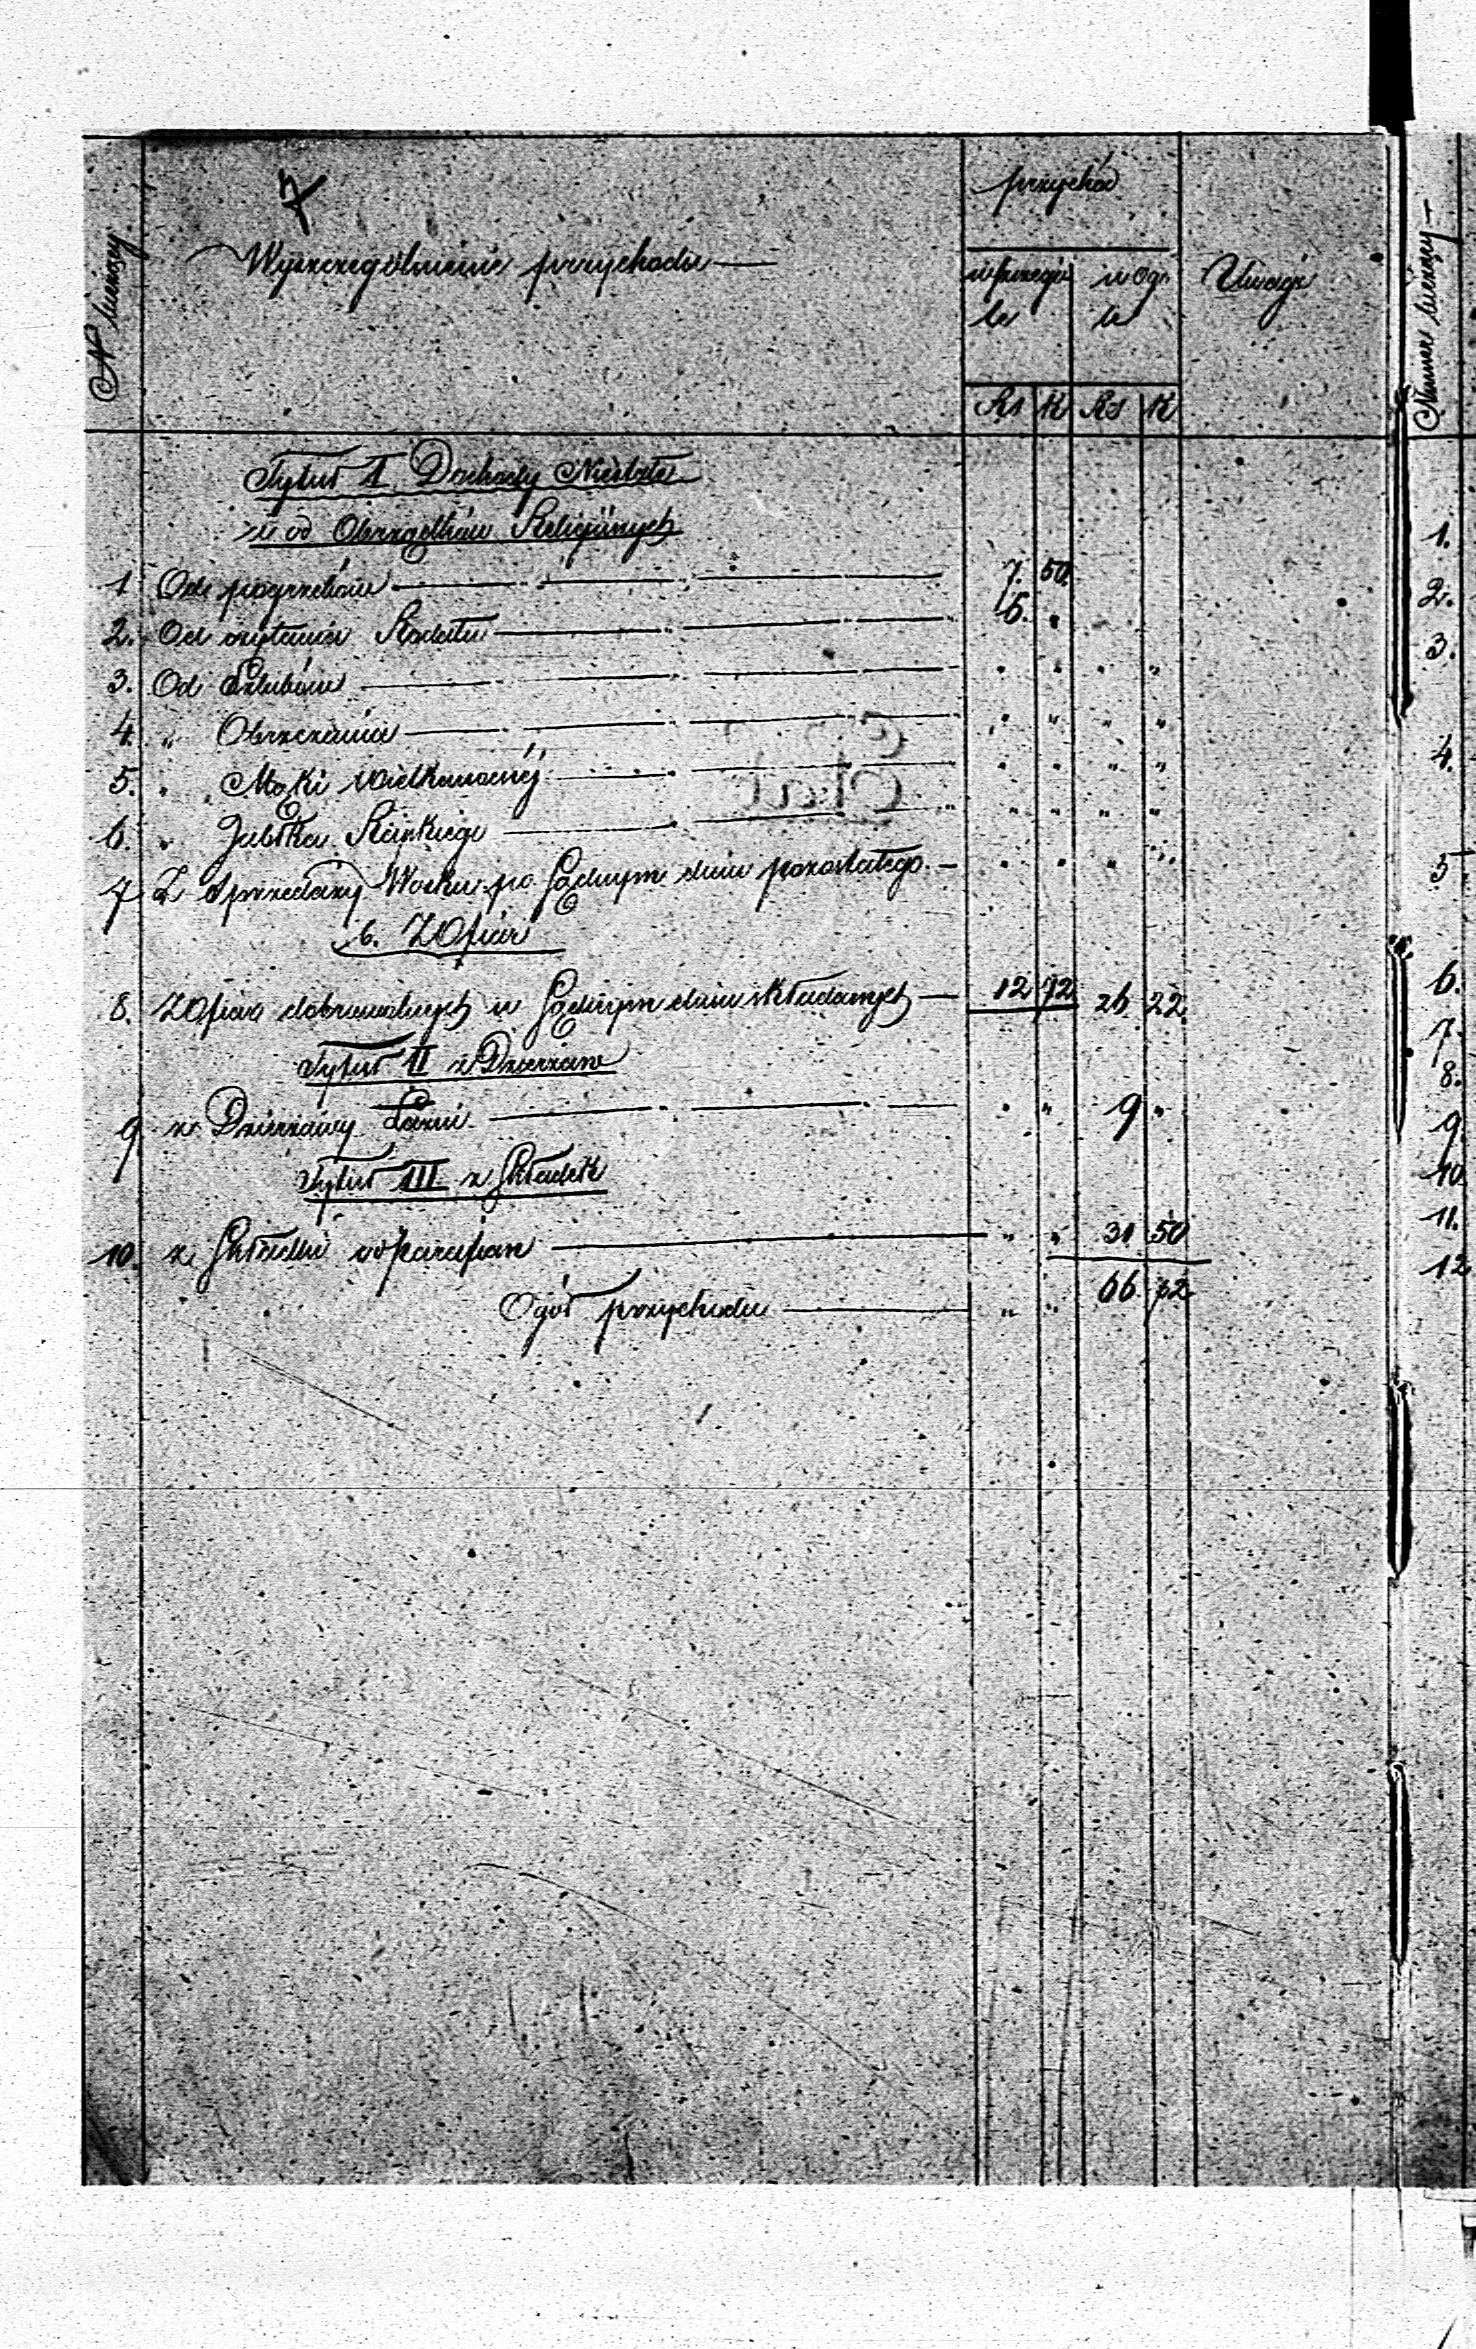 7
N bieżący
Wyszczególnienie przychodu
przychód
w szczegó
le
w Ogó
le
Uwagi
Rs K Rs K
Tytuł I. Dochody Niestałe
a od Obrządków Religijnych
1 Od pogrzebów 7. 50.
2. Od czytania Rodału 6. "
3. Od Szlubów " " " "
4. " Obrzezania " " " "
5. " Mąki wielkanocnéj " " " "
6. " Jabłka Rajskiego " " " "
7 Z Sprzedaży Wosku po Sądnym dniu pozostałego " " " "
b. Z Ofiar
8. Z Ofiar dobrowolnych w Sądnym dniu składanych 12 72 26 22
Tytuł II z Dzierżaw
9 z Dzierżawy Łazni " " 9 "
Tytuł III z Składek
10. z Składki od parafian " " 31 50
Ogół przychodu " " 66 72
Numer bieżący
1.
2.
3.
4.
5
6.
7.
8.
9.
10.
11.
12